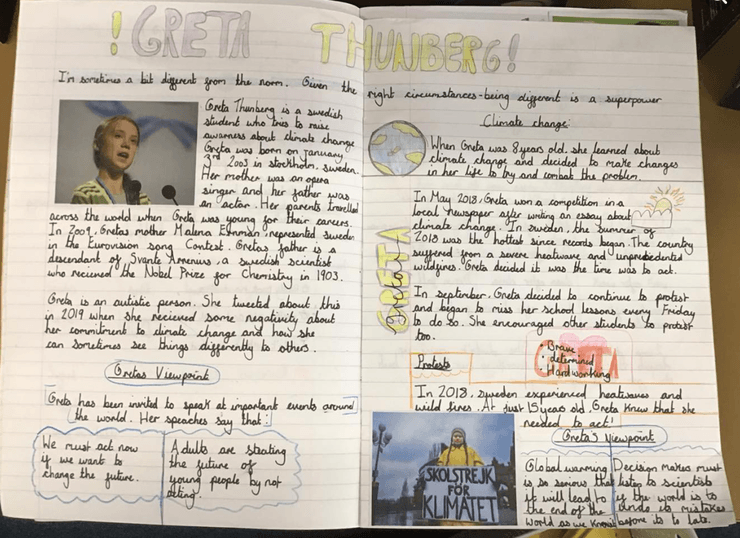 ! GRETA THUNBERG!
I'm sometimes a bit different from the norm. Given the right circumstances-being different is a superpower
Greta Thunberg is a swedish
student who tries to raise
awarness about climate change
Greta was born on january
3rd 2003 in stockholm, sweden.
Her mother was an opera
singer and her father was
an actor. Her parents travelled
across the world when Greta was young for their careers.
In 2009, Gretas mother Malena Ernman represented sweden
in the Eurovision song Contest. Gretas father is a
descendant of Svante Arrenius, a swedish scientist
who recieved the Nobel Prize for Chemistry in 1903.
Greta is an autistic person. She tweeted about this
in 2019 when she recieved some negativity about
her commitment to climate change and how she
can sometimes see things differently to others.
Gretas Viewpoint
Greta has been invited to speak at important events around
the world. Her speaches say that:
We must act now
if we want to
change the future.
Adults are stealing
the future of
young people by not
acting.
Climate change:
When Greta was 8 years old, she learned about
climate change and decided to make changes
in her life to try and combat the problem.
In May 2018, Greta won a competition in a
local newspaper after writing an essay about
climate change. In sweden, the summer of
2018 was the hottest since records began. The country
suffered from a severe heatwave and unprecedented
wildfires. Greta decided it was the time was to act.
GRETA
Greta
In september, Greta decided to continue to protest
and began to miss her school lessons every Friday
to do so. She encouraged other students to protest
too.
Protests
GRETA
• Brave
• determined
• Hardworking
In 2018, sweden experienced heatwaves and
wild fires. At just 15 years old, Greta knew that she
needed to act!
SKOLSTREJK
FÖR
KLIMATET
Greta's viewpoint
Global warming
is so serious that
it will lead to
the end of the
world as we know
Decision makers must
listen to scientists
if the world is to
undo its mistakes
before its to late.